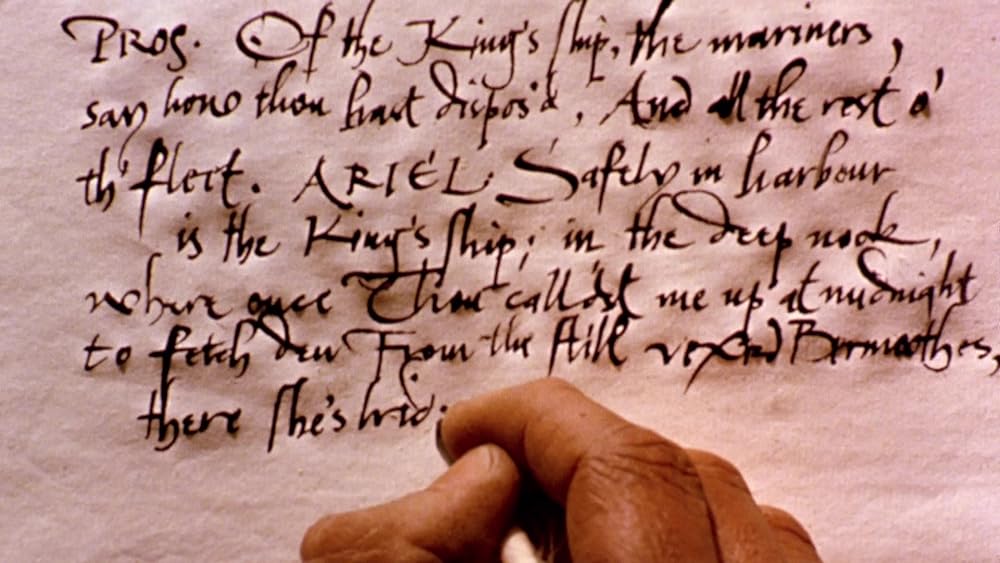 PROS. Of the King's ship, the mariners,
say how thou hast dispos'd, And all the rest o'
th' fleet. ARIEL. Safely in harbour
is the King's ship; in the deep nook,
where once Thou call'dst me up at midnight
to fetch dew From the still vexed Bermoothes,
there she's hid;